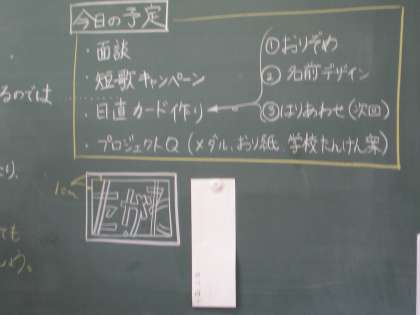 今日の予定
・面談
・短歌キャンペーン
・日直カード作り
①おりぞめ
②名前デザイン
③はりあわせ(次回)
・プロジェクトQ(メダル、おり紙、学校たんけん案)
るのでは
1cm
ても